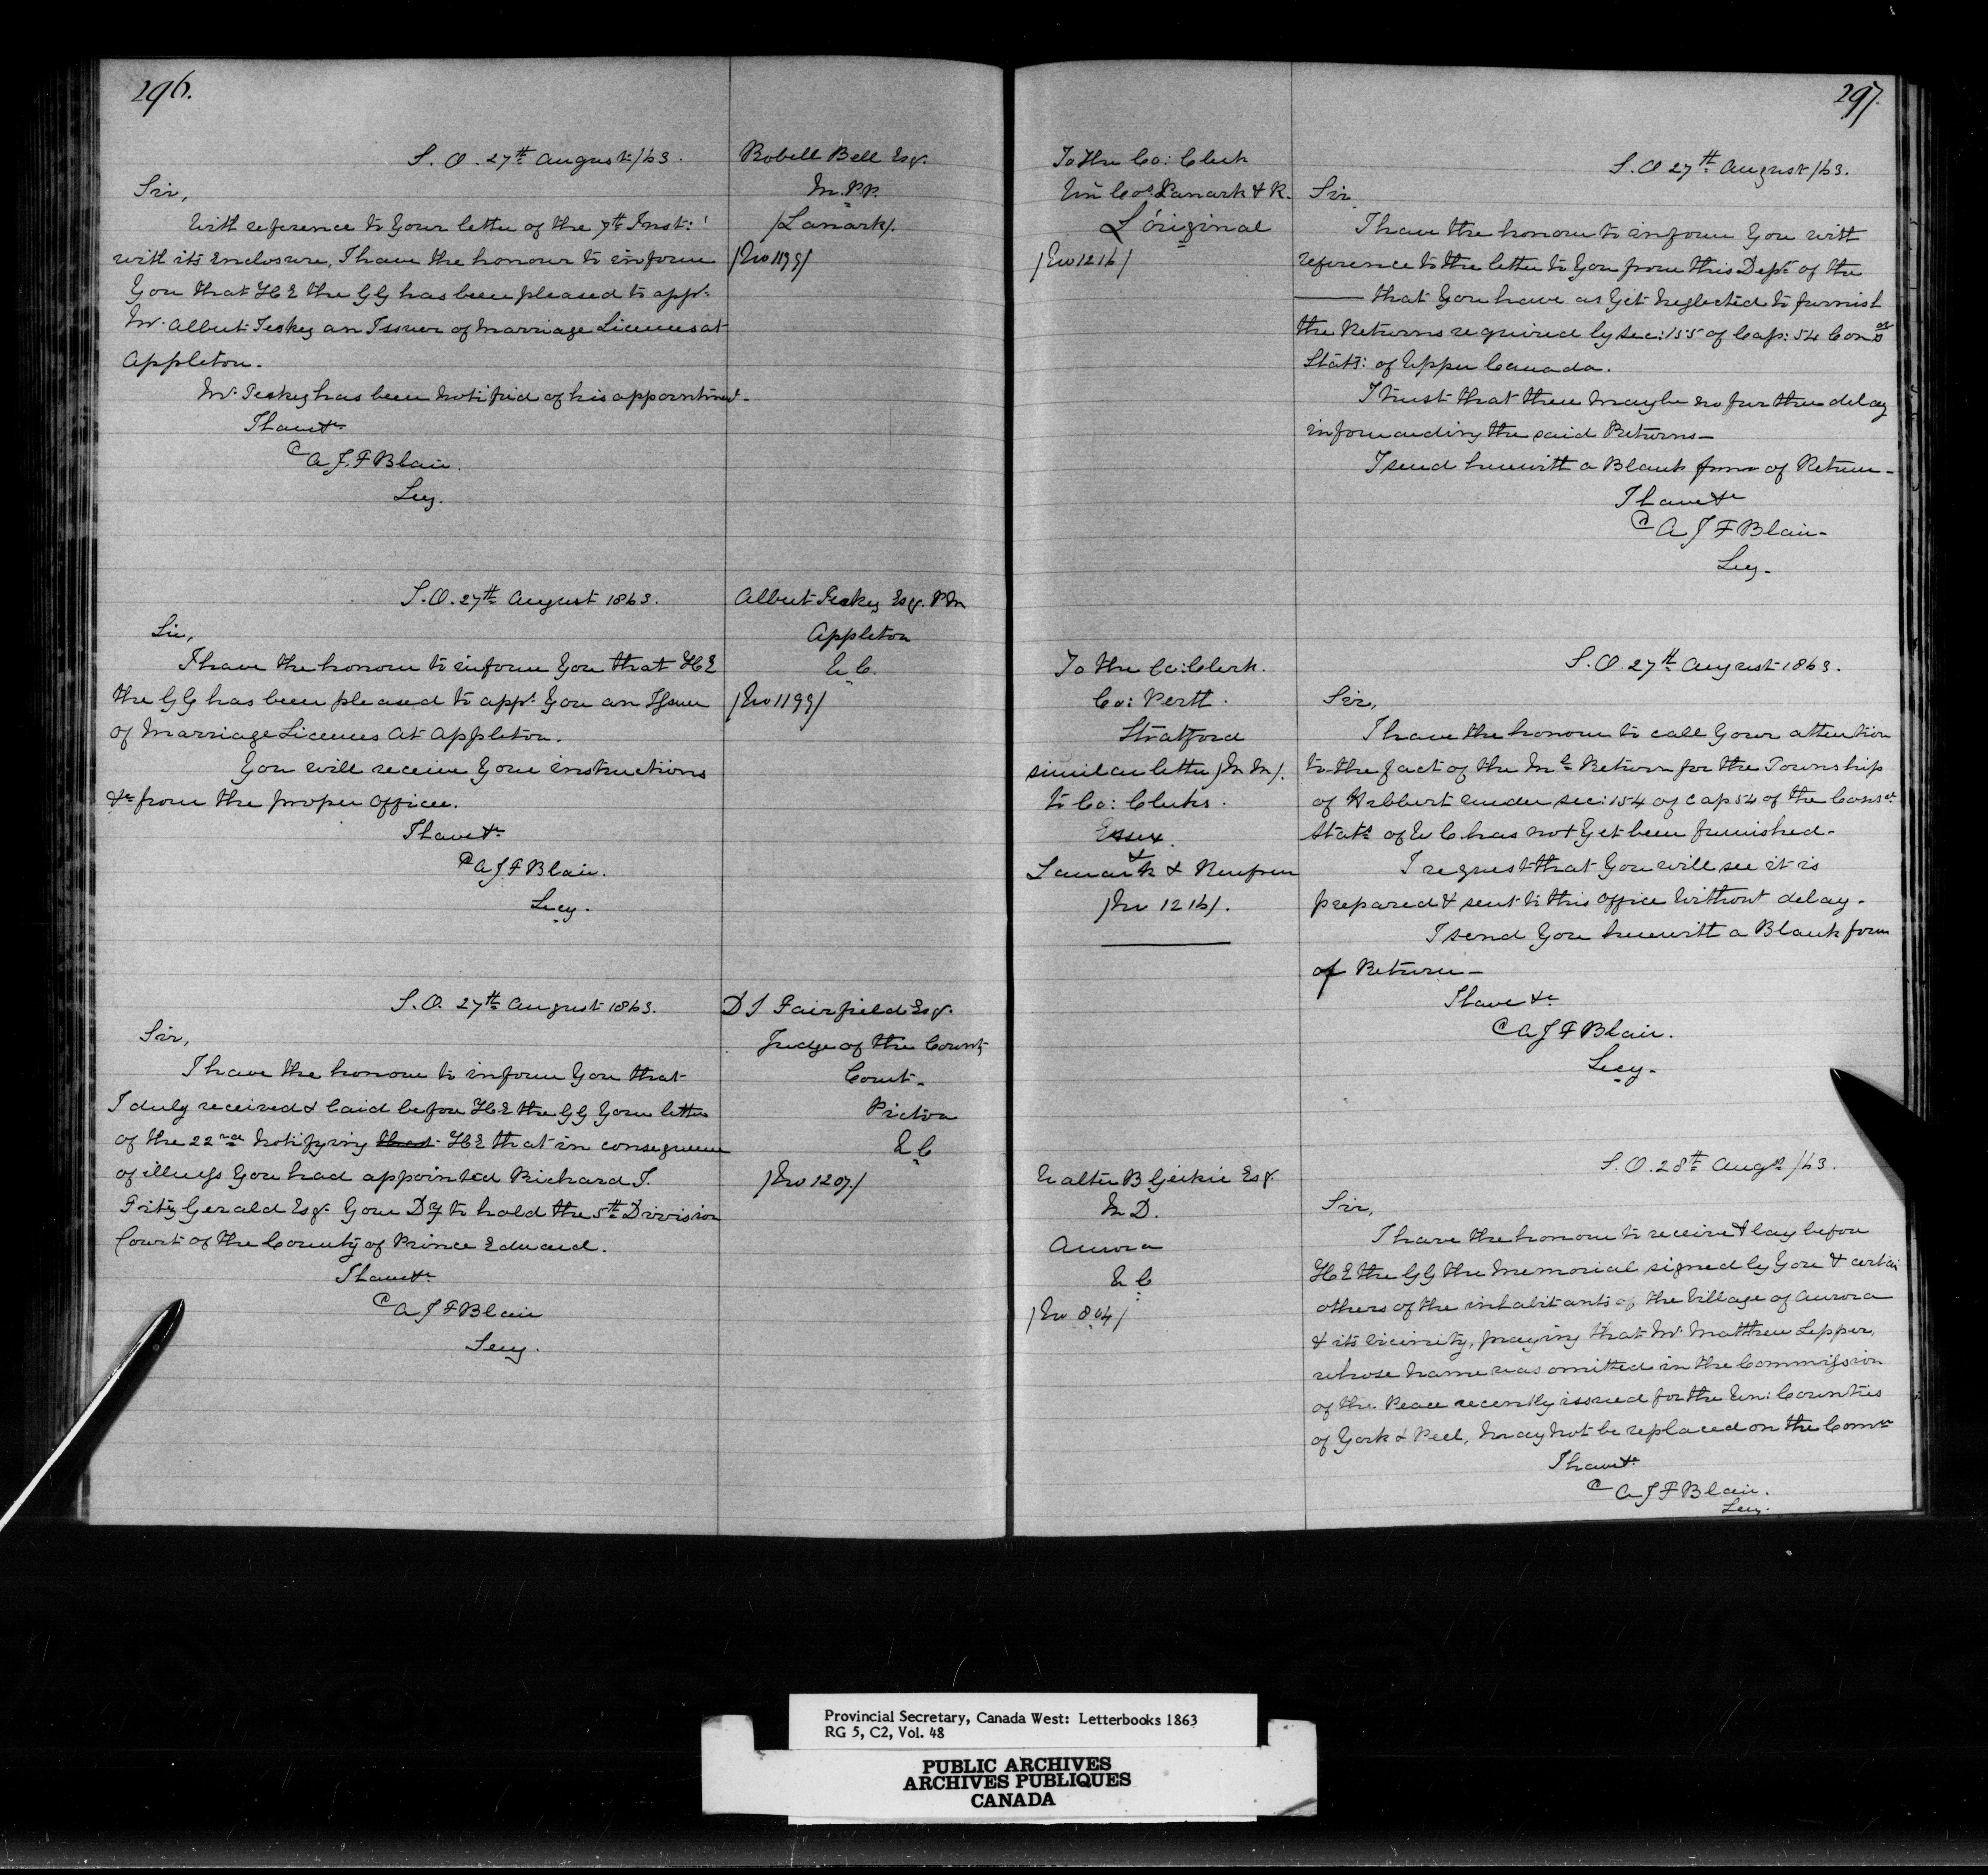 296.
S. O. 27th August /63.
Robell Bell Esqr.
M.P.P.
/Lanark/.
/No 1199/
Sir,
With reference to Your letter of the 7th Inst:
with its Enclosure, I have the honour to inform
You that H E the G G has been pleased to appt
Mr. Albert Teskey an Issuer of Marriage Licenses at
Appleton.
Mr. Teskey has been notified of his appointment.
I have &c
A J. F Blair.
Secy.
S. O. 27th August 1863.
Albert Teskey Esqr. P M
Appleton
U C.
/No 1199/
Sir,
I have the honour to inform You that H E
the G G has been pleased to appt You an Issuer
of Marriage Licenses at Appleton.
You will receive Your instructions
&c from the proper Officer.
I have &c
A J F Blair.
Secy.
S. O. 27th August 1863.
D S Fairfield Esqr.
Judge of the County
Court.
Picton
U C
/No 1207/
Sir,
I have the honour to inform You that
I duly received & laid before H E the G G Your letter
of the 22nd notifying that H E that in consequence
of illness You had appointed Richard J.
Fitz Gerald Esqr. Your Dy to hold the 5th Division
Court of the County of Prince Edward.
I have &c
A J F Blair
Secy.
297.
To the Co: Clerk
Un Cos. Lanark & R.
L'original
/No 1216/
S. O 27th August /63.
Sir
I have the honour to inform You with
reference to the letter to You from this Dept of the
——— that You have as Yet neglected to furnish
the Returns required by Sec: 155 of Cap: 54 Consd
Stats: of Upper Canada.
I trust that there may be no further delay
in forwarding the said Returns—
I send herewith a Blank form of Return—
I have &c
A J F Blair—
Secy—
To the Co: Clerk.
Co: Perth.
Stratford
similar letter /M M/.
to Co: Clerks.
Essex.
&
Lanark & Renfrew
/No 1216/.
S. O. 27th August 1863.
Sir,
I have the honour to call Your attention
to the fact of the Ml Return for the Township
of Hibbert under sec: 154 of Cap 54 of the Consd
Stats of U C has not Yet been furnished—
I request that You will see it is
prepared & sent to this Office Without delay—
I send You herewith a Blank form
of Return—
I have &c
A J F Blair.
Secy—
Walter B Geikie Esqr.
M D.
Aurora
U C
/No 804/
S. O. 28th Augt /63.
Sir,
I have the honour to receive & lay before
H E the G G the Memorial signed by You & certain
others of the inhabitants of the Village of Aurora
& its vicinity, praying that Mr Matthew Lepper,
whose name was omitted in the Commission
of the Peace recently issued for the Un: Counties
of York & Peel, may not be replaced on the Comn
I have &c
A J F Blair.
Secy.
Provincial Secretary, Canada West: Letterbooks 1863
RG 5, C2, Vol. 48
PUBLIC ARCHIVES
ARCHIVES PUBLIQUES
CANADA